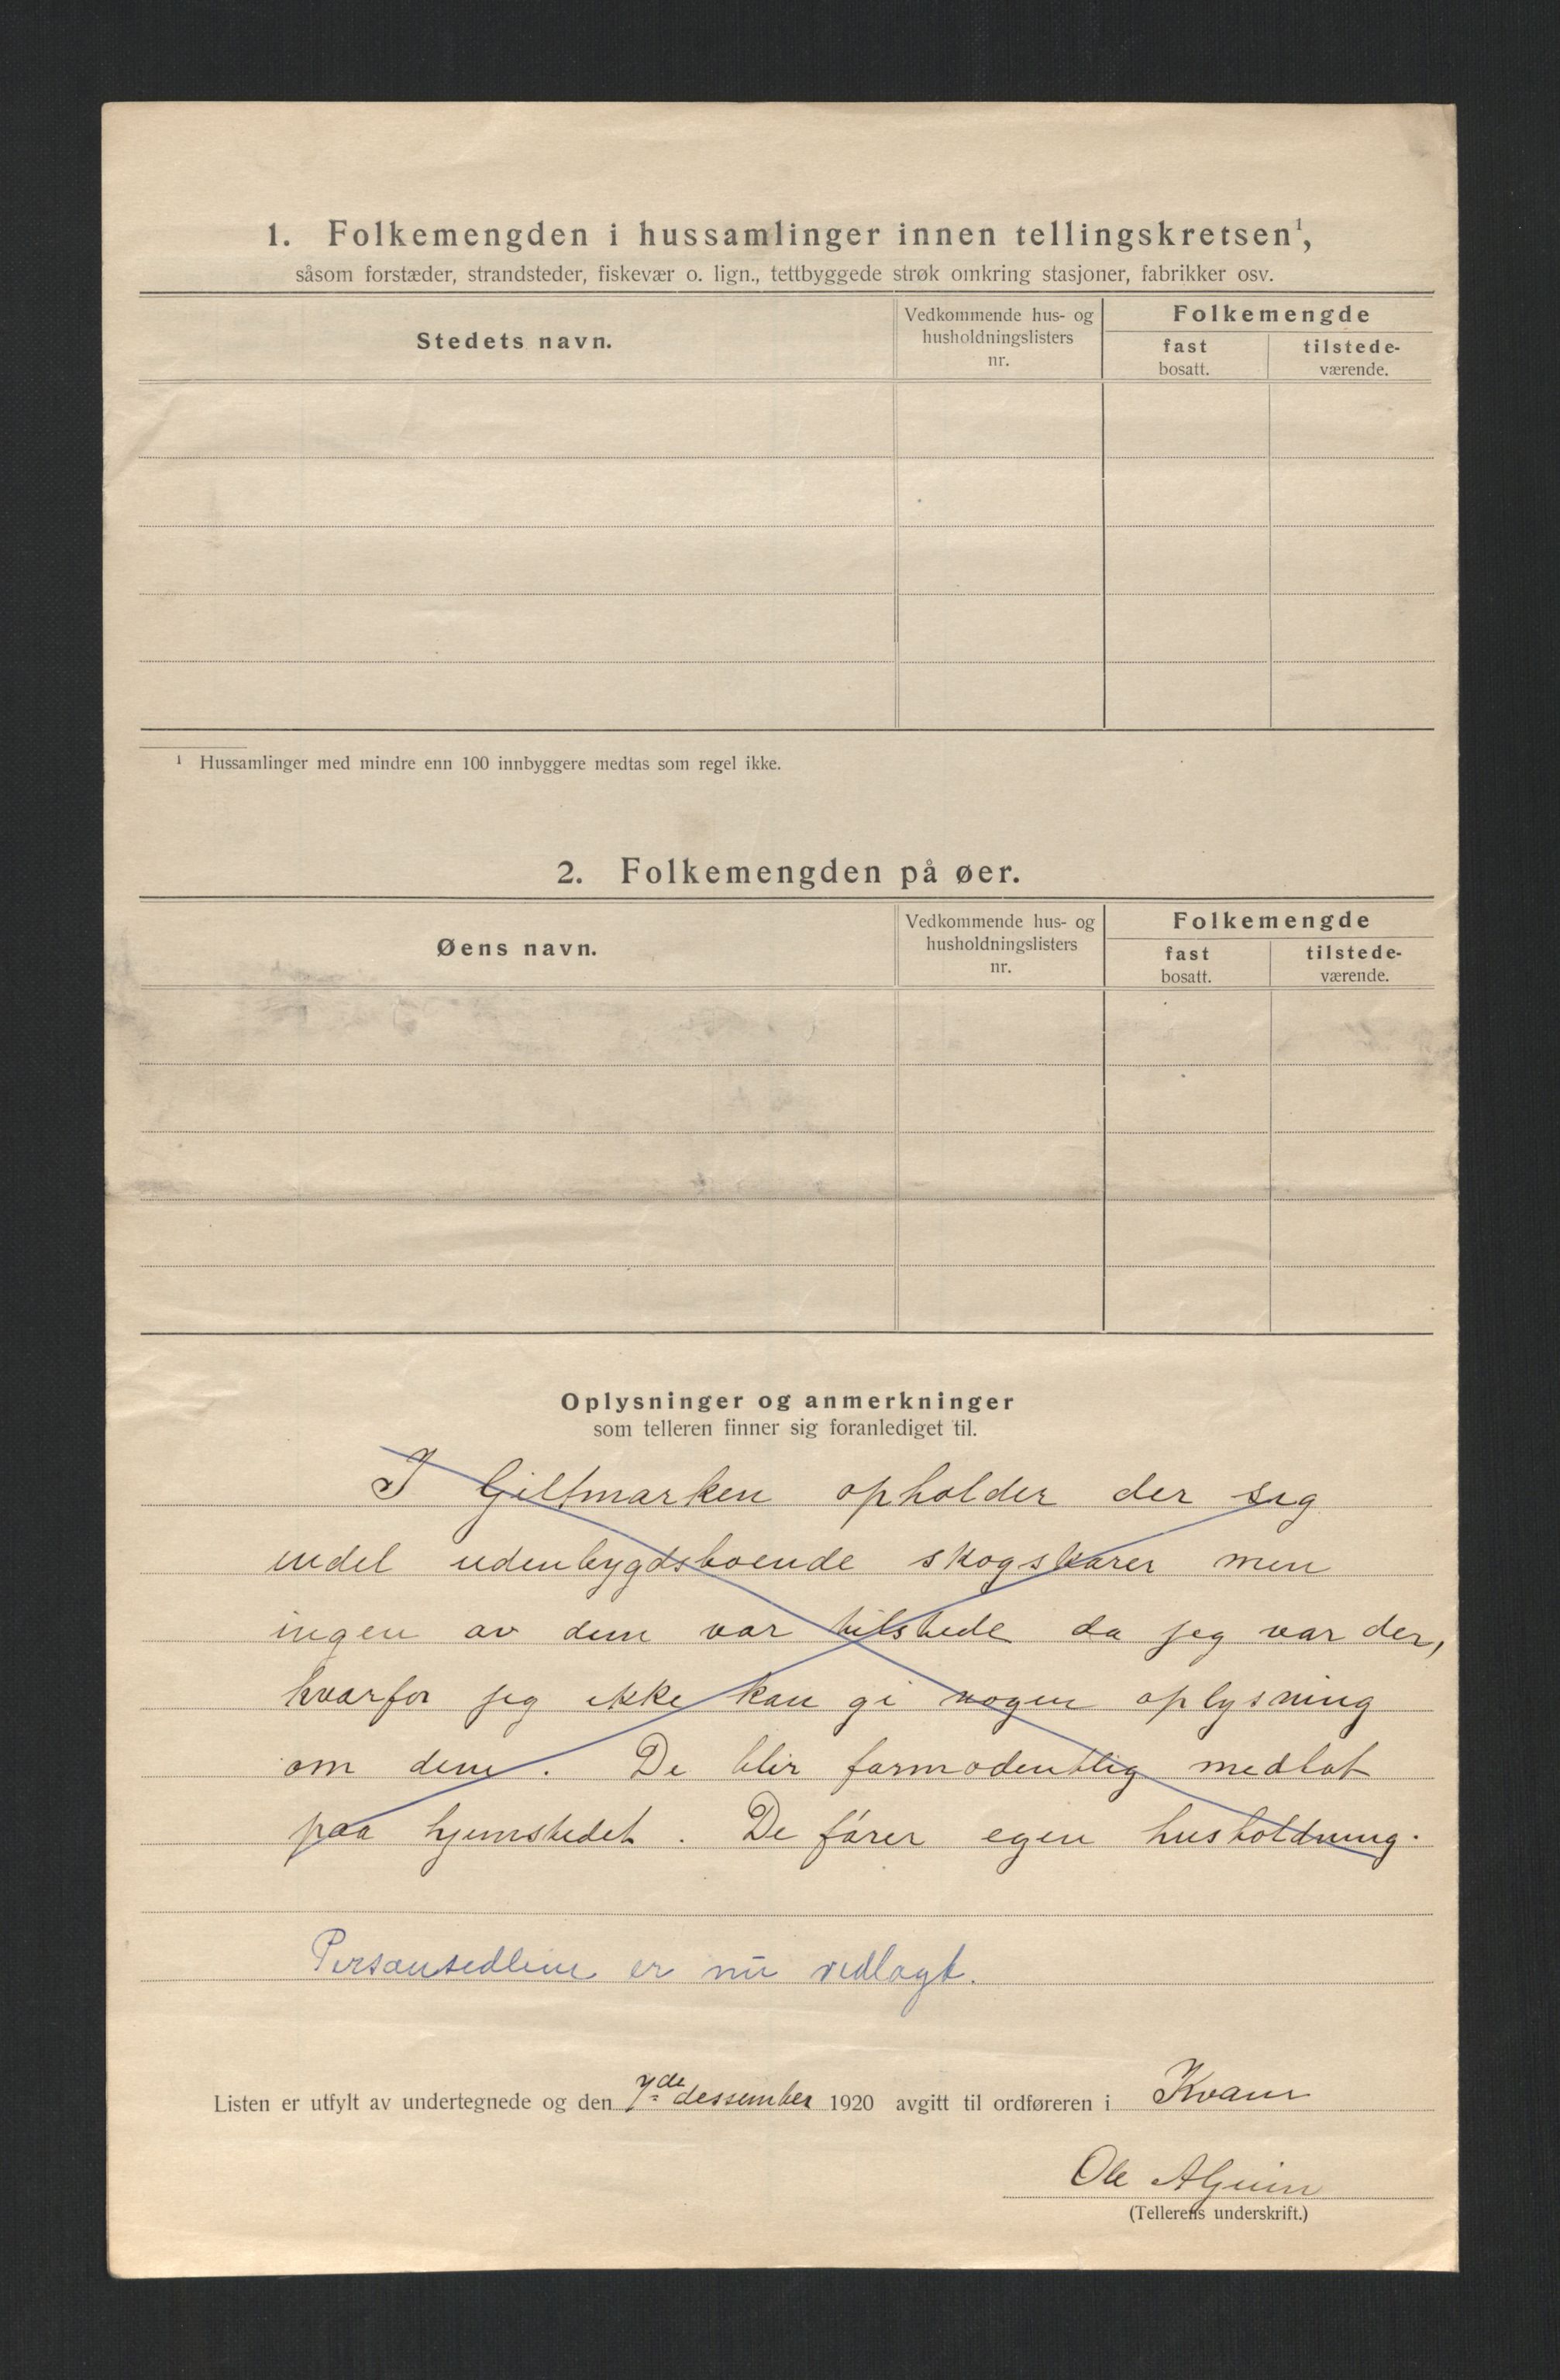 1. Folkemengden i hussamlinger innen tellingskretsen¹,
såsom forstæder, strandsteder, fiskevær o. lign., tettbyggede strøk omkring stasjoner, fabrikker osv.
Stedets navn.
Vedkommende hus- og
husholdningslisters
nr.
Folkemengde
fast
bosatt.
tilstede-
værende.
¹ Hussamlinger med mindre enn 100 innbyggere medtas som regel ikke.
2. Folkemengden på øer.
Øens navn.
Vedkommende hus- og
husholdningslisters
nr.
Folkemengde
fast
bosatt.
tilstede-
værende.
Oplysninger og anmerkninger
som telleren finner sig foranlediget til.
I Giltmarken opholder der sig
endel udenbygdsboende skogskarer men
ingen av dem var tilstede da jeg var der,
hvorfor jeg ikke kan gi nogen oplysning
om dem. De blir formodentlig medtat
paa hjemstedet. De fører egen husholdning.
Personsedlene er nu vedlagt.
Listen er utfylt av undertegnede og den 7de dessember 1920 avgitt til ordføreren i Kvam
Ole
(Tellerens underskrift.)